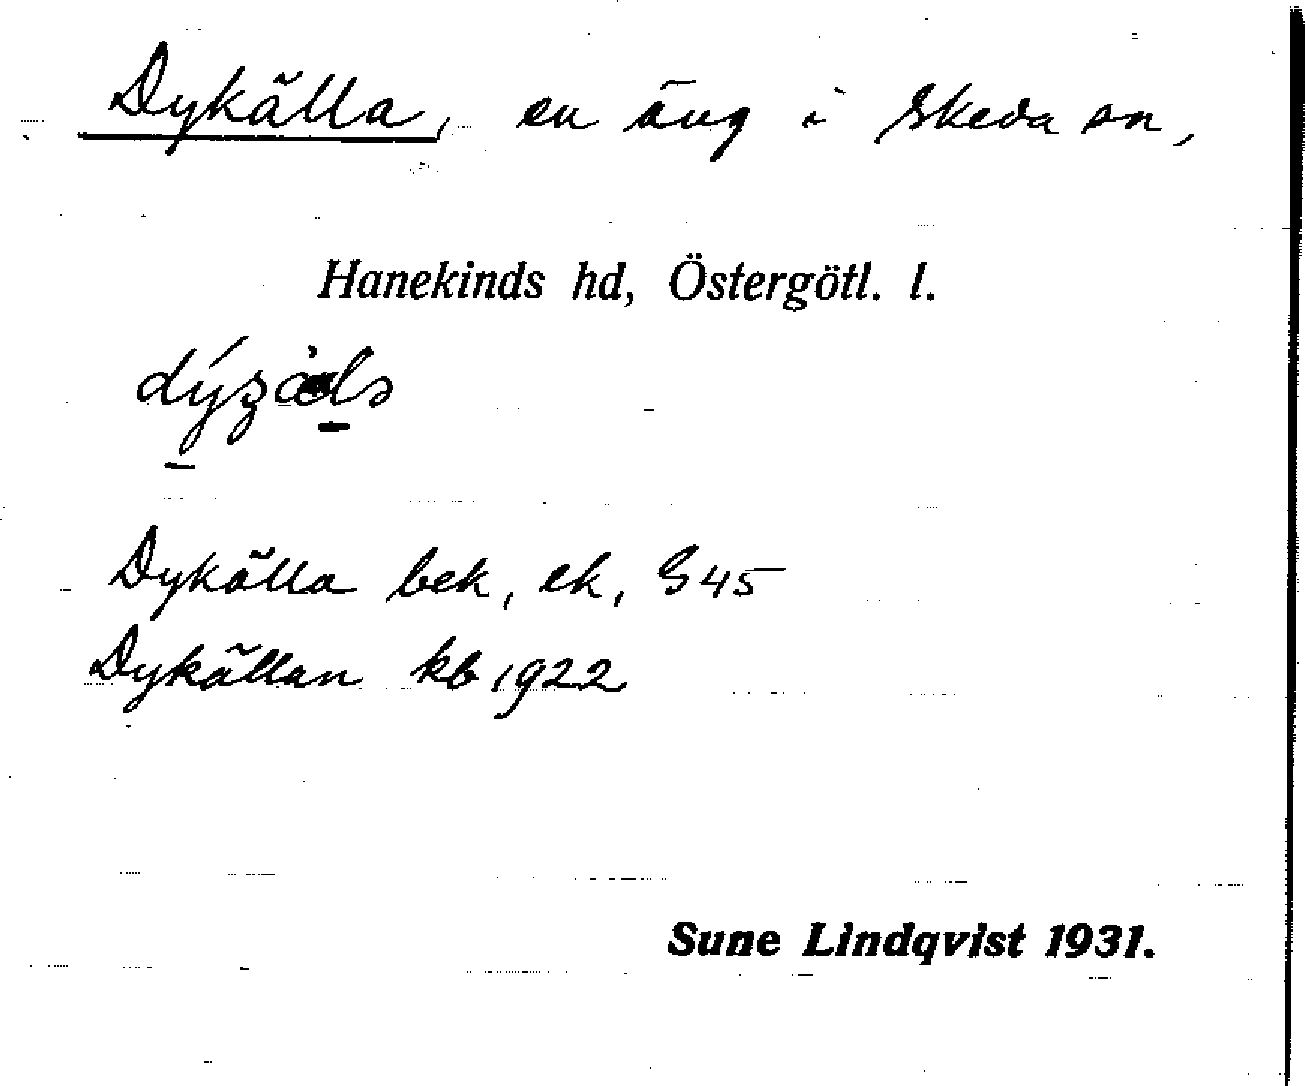 Dykälla, en äng i Skeda sn,
Hanekinds hd, Östergötl. l.
Dykälla bek, ek, G45
Dykällan kb 1922
Sune Lindqvist 1931.